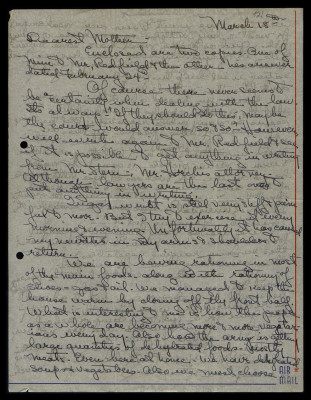 March 18
Dearest Mother -
Enclosed are two copies. One of
mine to Mr. Redfield & the other - his answer
dated February 24th
Of course there never seems to
be a "certainty" when dealing with the law
its always "if they should do this, maybe
the court would answer, so & so - However
will write again to Mr. Redfield & see
if it is possible to get anything in writing
from Mr. Stern, Mr. his attorney.
Although lawyers are the last ones to
put anything in writing.
wrist is still very stiff & pain-
ful to move. But I try to exercise it every
morning & evening. Unfortunately it has caused
my neuritis in my arms & shoulders to
return.
We are having rationing in most
of the main foods along with rationing of
shoes - gas & oil. We managed to keep the
house warm by closing off the front half.
What is interesting to me is how the people
as a whole are becoming more & more vegetar-
ians every day. Also how the army is getting
large quantities of dehydrated foods. Mostly
meats. Even here at home. We have dehydrated
soups & vegetables. Also use much cheese
AIR
MAIL